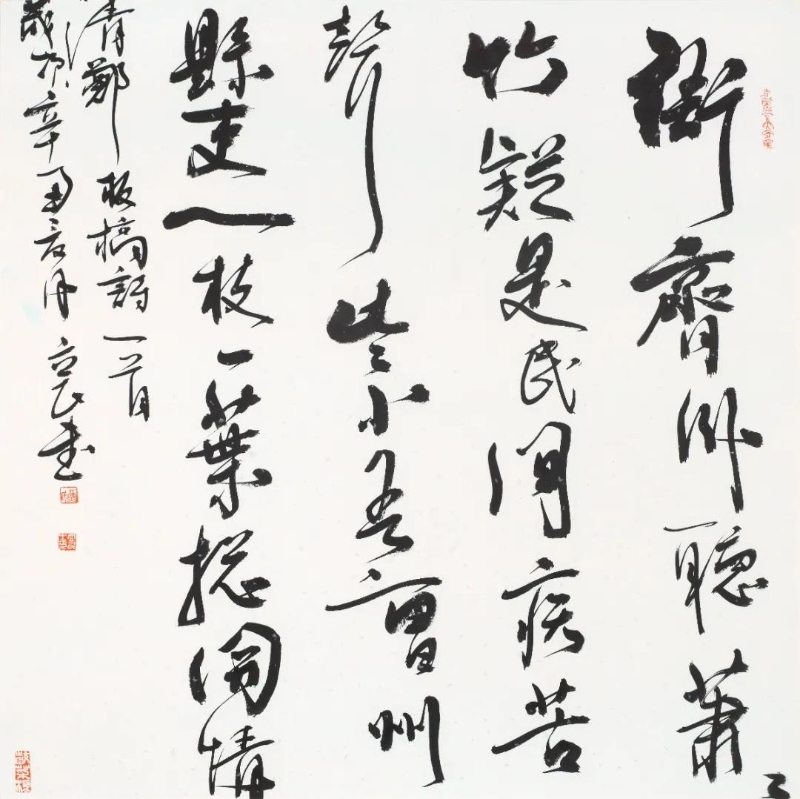 衙齋卧聽蕭〻
竹疑是民間疾苦
聲些小吾曹州
縣吏一枝一葉捴関情
清鄭板橋詩一首
歲次辛月書